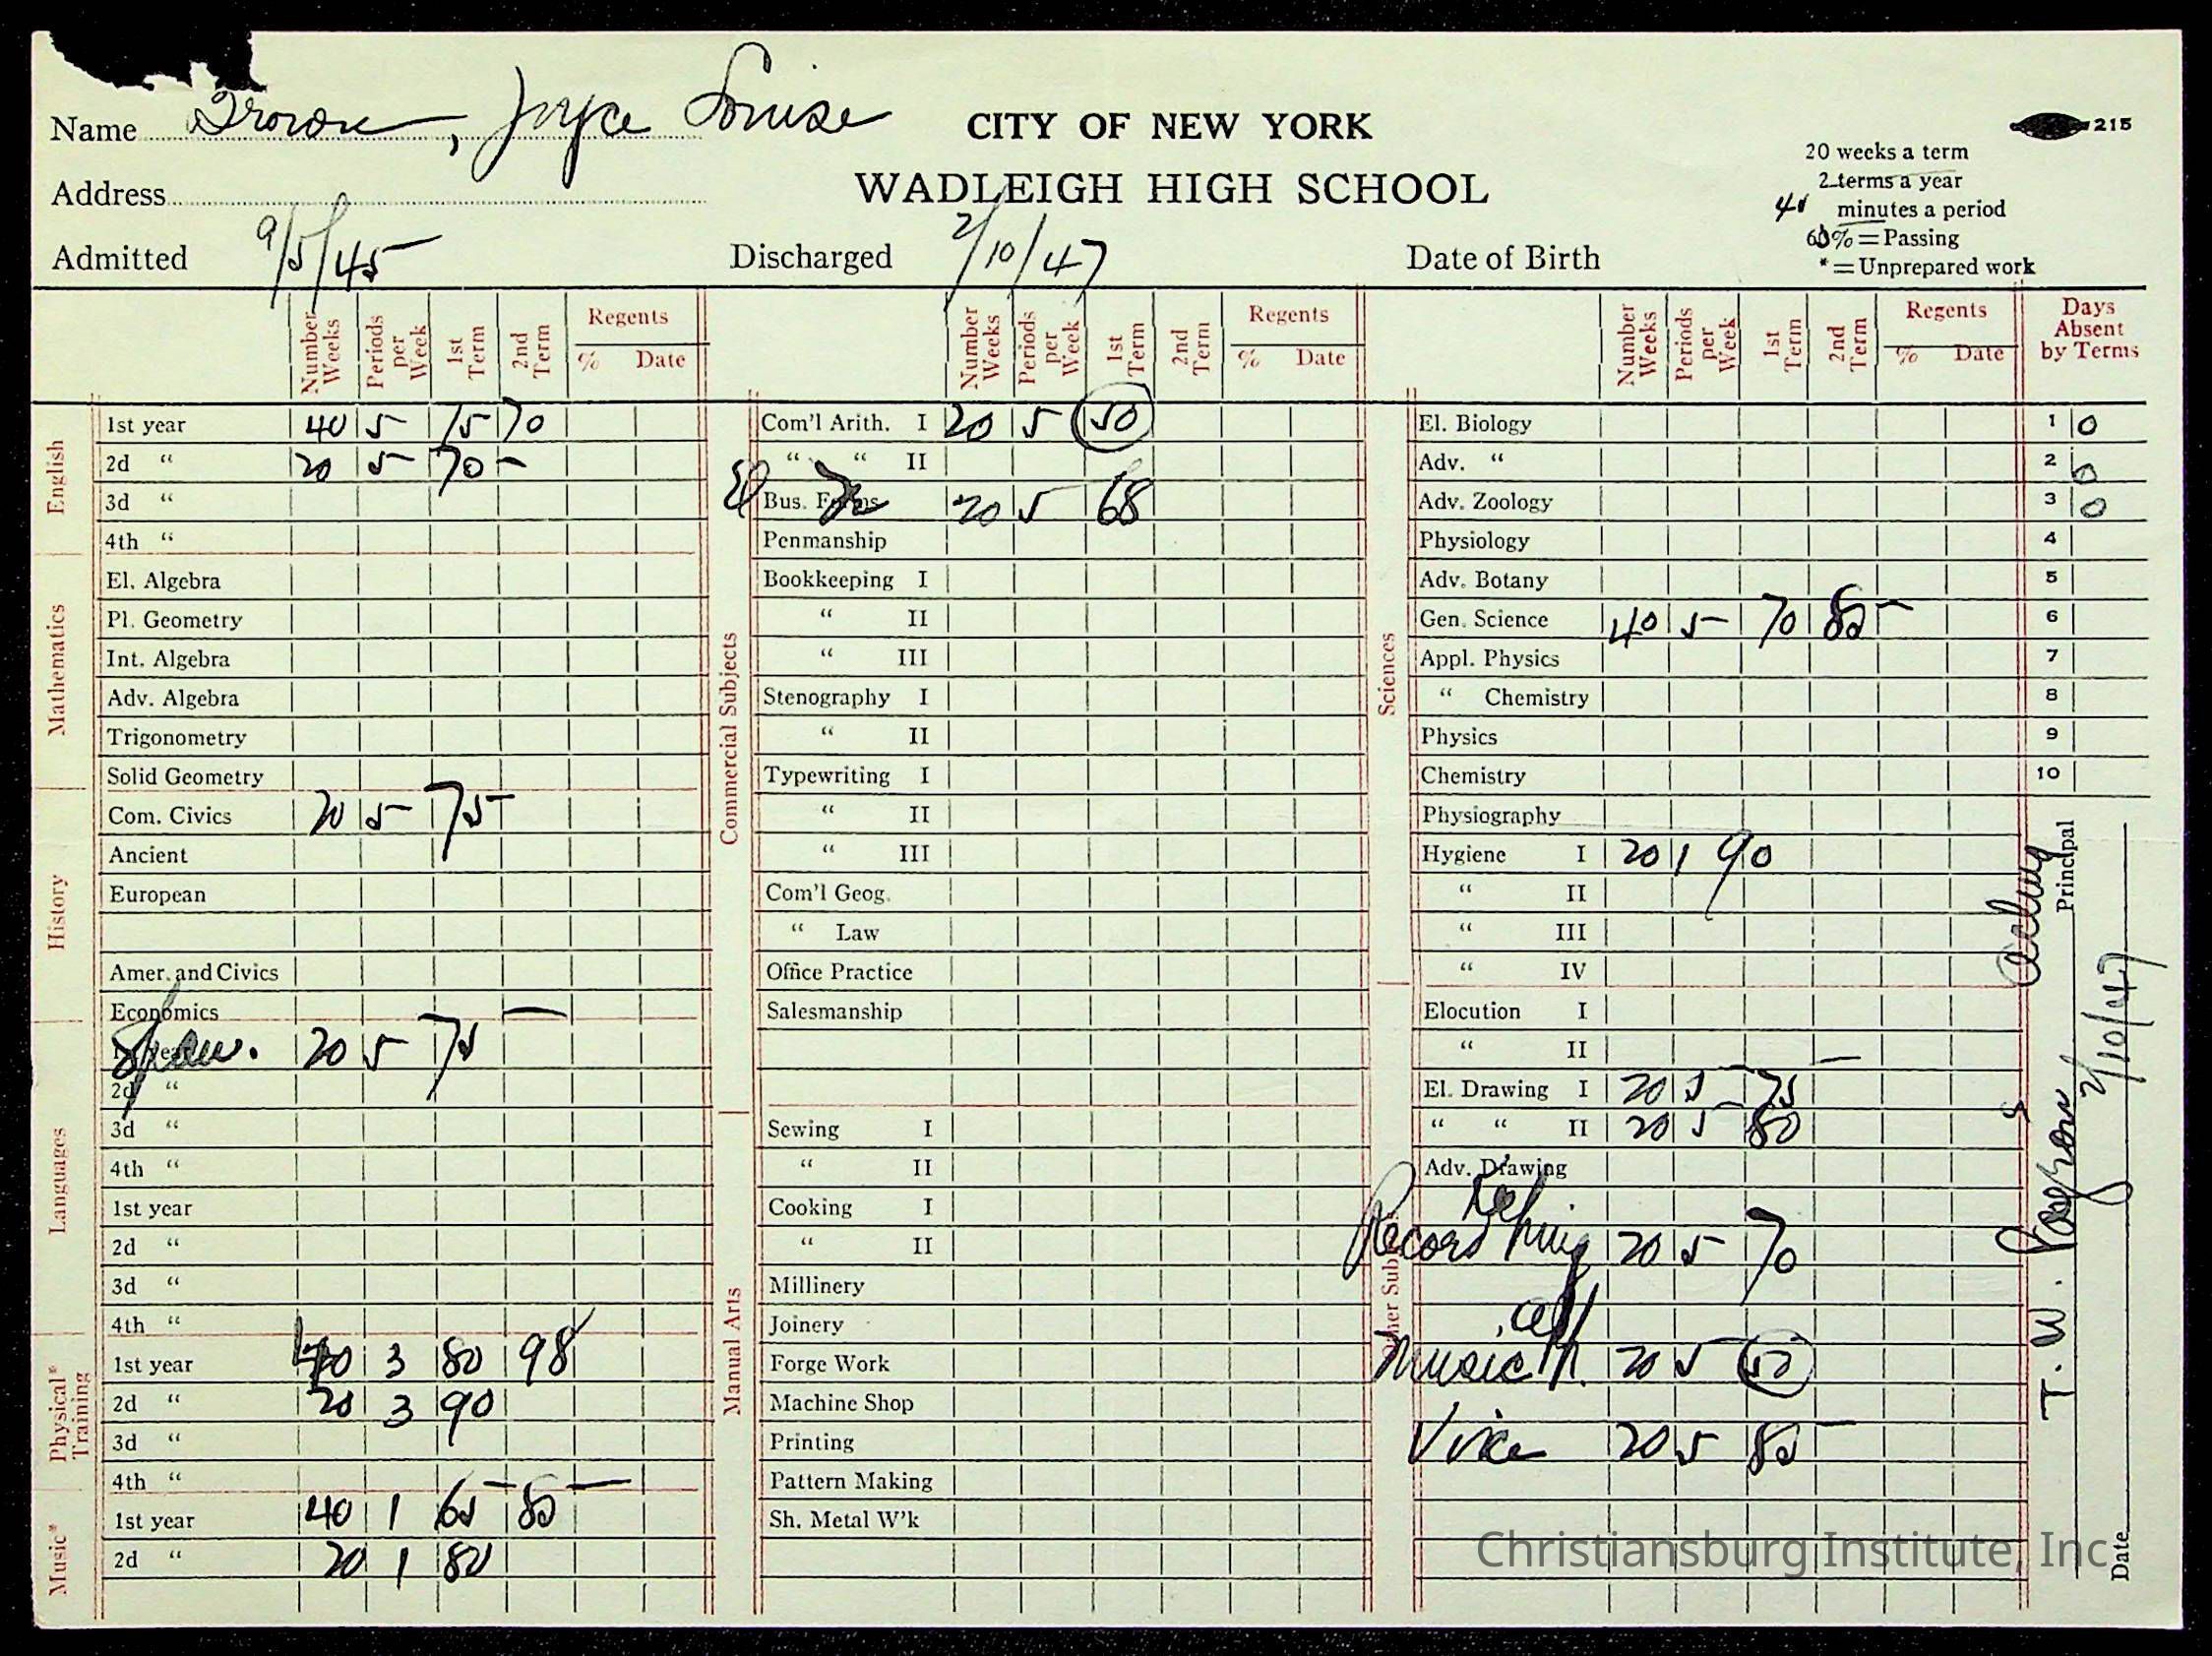 Name Brown, Joyce Louise
CITY OF NEW YORK
WADLEIGH HIGH SCHOOL
215
20 weeks a term
2 terms a year
45 minutes a period
60% = Passing
* = Unprepared work
Address
Admitted 9/5/45 Discharged 2/10/47 Date of Birth
Number Weeks Periods per Week 1st Term 2nd Term Regents % Date
Number Weeks Periods per Week 1st Term 2nd Term Regents % Date
Number Weeks Periods per Week 1st Term 2nd Term Regents % Date
Days Absent by Terms
English
1st year 40 5 75 70
2d " 20 5 70 -
3d "
4th "
Mathematics
El. Algebra
Pl. Geometry
Int. Algebra
Adv. Algebra
Trigonometry
Solid Geometry
History
Com. Civics 20 5 75
Ancient
European
Amer. and Civics
Economics
Languages
1st year Span. 20 5 75
2d "
3d "
4th "
1st year
2d "
3d "
4th "
Physical* Training
1st year 40 3 80 98
2d " 20 3 90
3d "
4th "
Music*
1st year 40 1 65 85
2d " 20 1 80
Commercial Subjects
Com'l Arith. I 20 5 50
" " II
Bus. Forms 20 5 68
Penmanship
Bookkeeping I
" II
" III
Stenography I
" II
Typewriting I
" II
" III
Com'l Geog.
" Law
Office Practice
Salesmanship
Manual Arts
Sewing I
" II
Cooking I
" II
Millinery
Joinery
Forge Work
Machine Shop
Printing
Pattern Making
Sh. Metal W'k
Sciences
El. Biology
Adv. "
Adv. Zoology
Physiology
Adv. Botany
Gen. Science 40 5 70 85
Appl. Physics
" Chemistry
Physics
Chemistry
Physiography
Hygiene I 20 1 90
" II
" III
" IV
Other Sub
Elocution I
" II
El. Drawing I 20 5 75
" " II 20 5 80
Adv. Drawing
Record Keping 20 5 70
Music 20 5 50
Voice 20 5 85
1 0
2 0
3 0
4
5
6
7
8
9
10
T. W. Acting Principal
Date 2/10/47
Christiansburg Institute, Inc